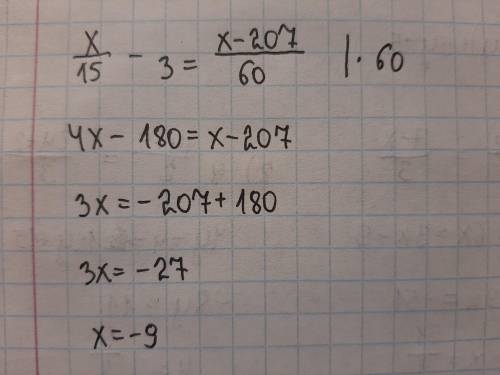 x/15 - 3 = x-207/60 |· 60
4x - 180 = x - 207
3x = - 207 + 180
3x = - 27
x = - 9